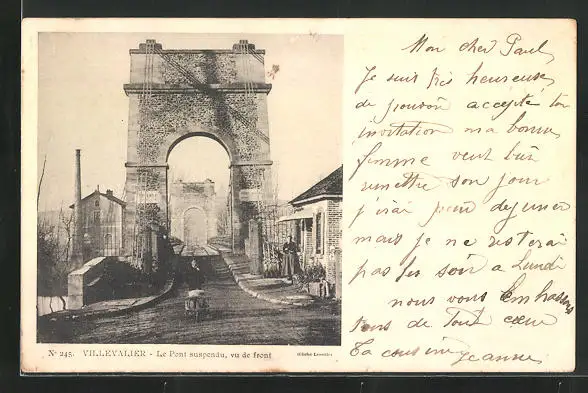 Mon cher Paul,
Je suis très heureuse
de pouvoir accepté ton
invitation ma bonne
femme veut bien
remettre son jour
j'irai pour dejeuner
mais je ne resterai
pas le soir a Lundi
nous vous Embrassons
tous de tout cœur
Ta cousine Jeanne
Nº 245. VILLEVALIER - Le Pont suspendu, vu de front